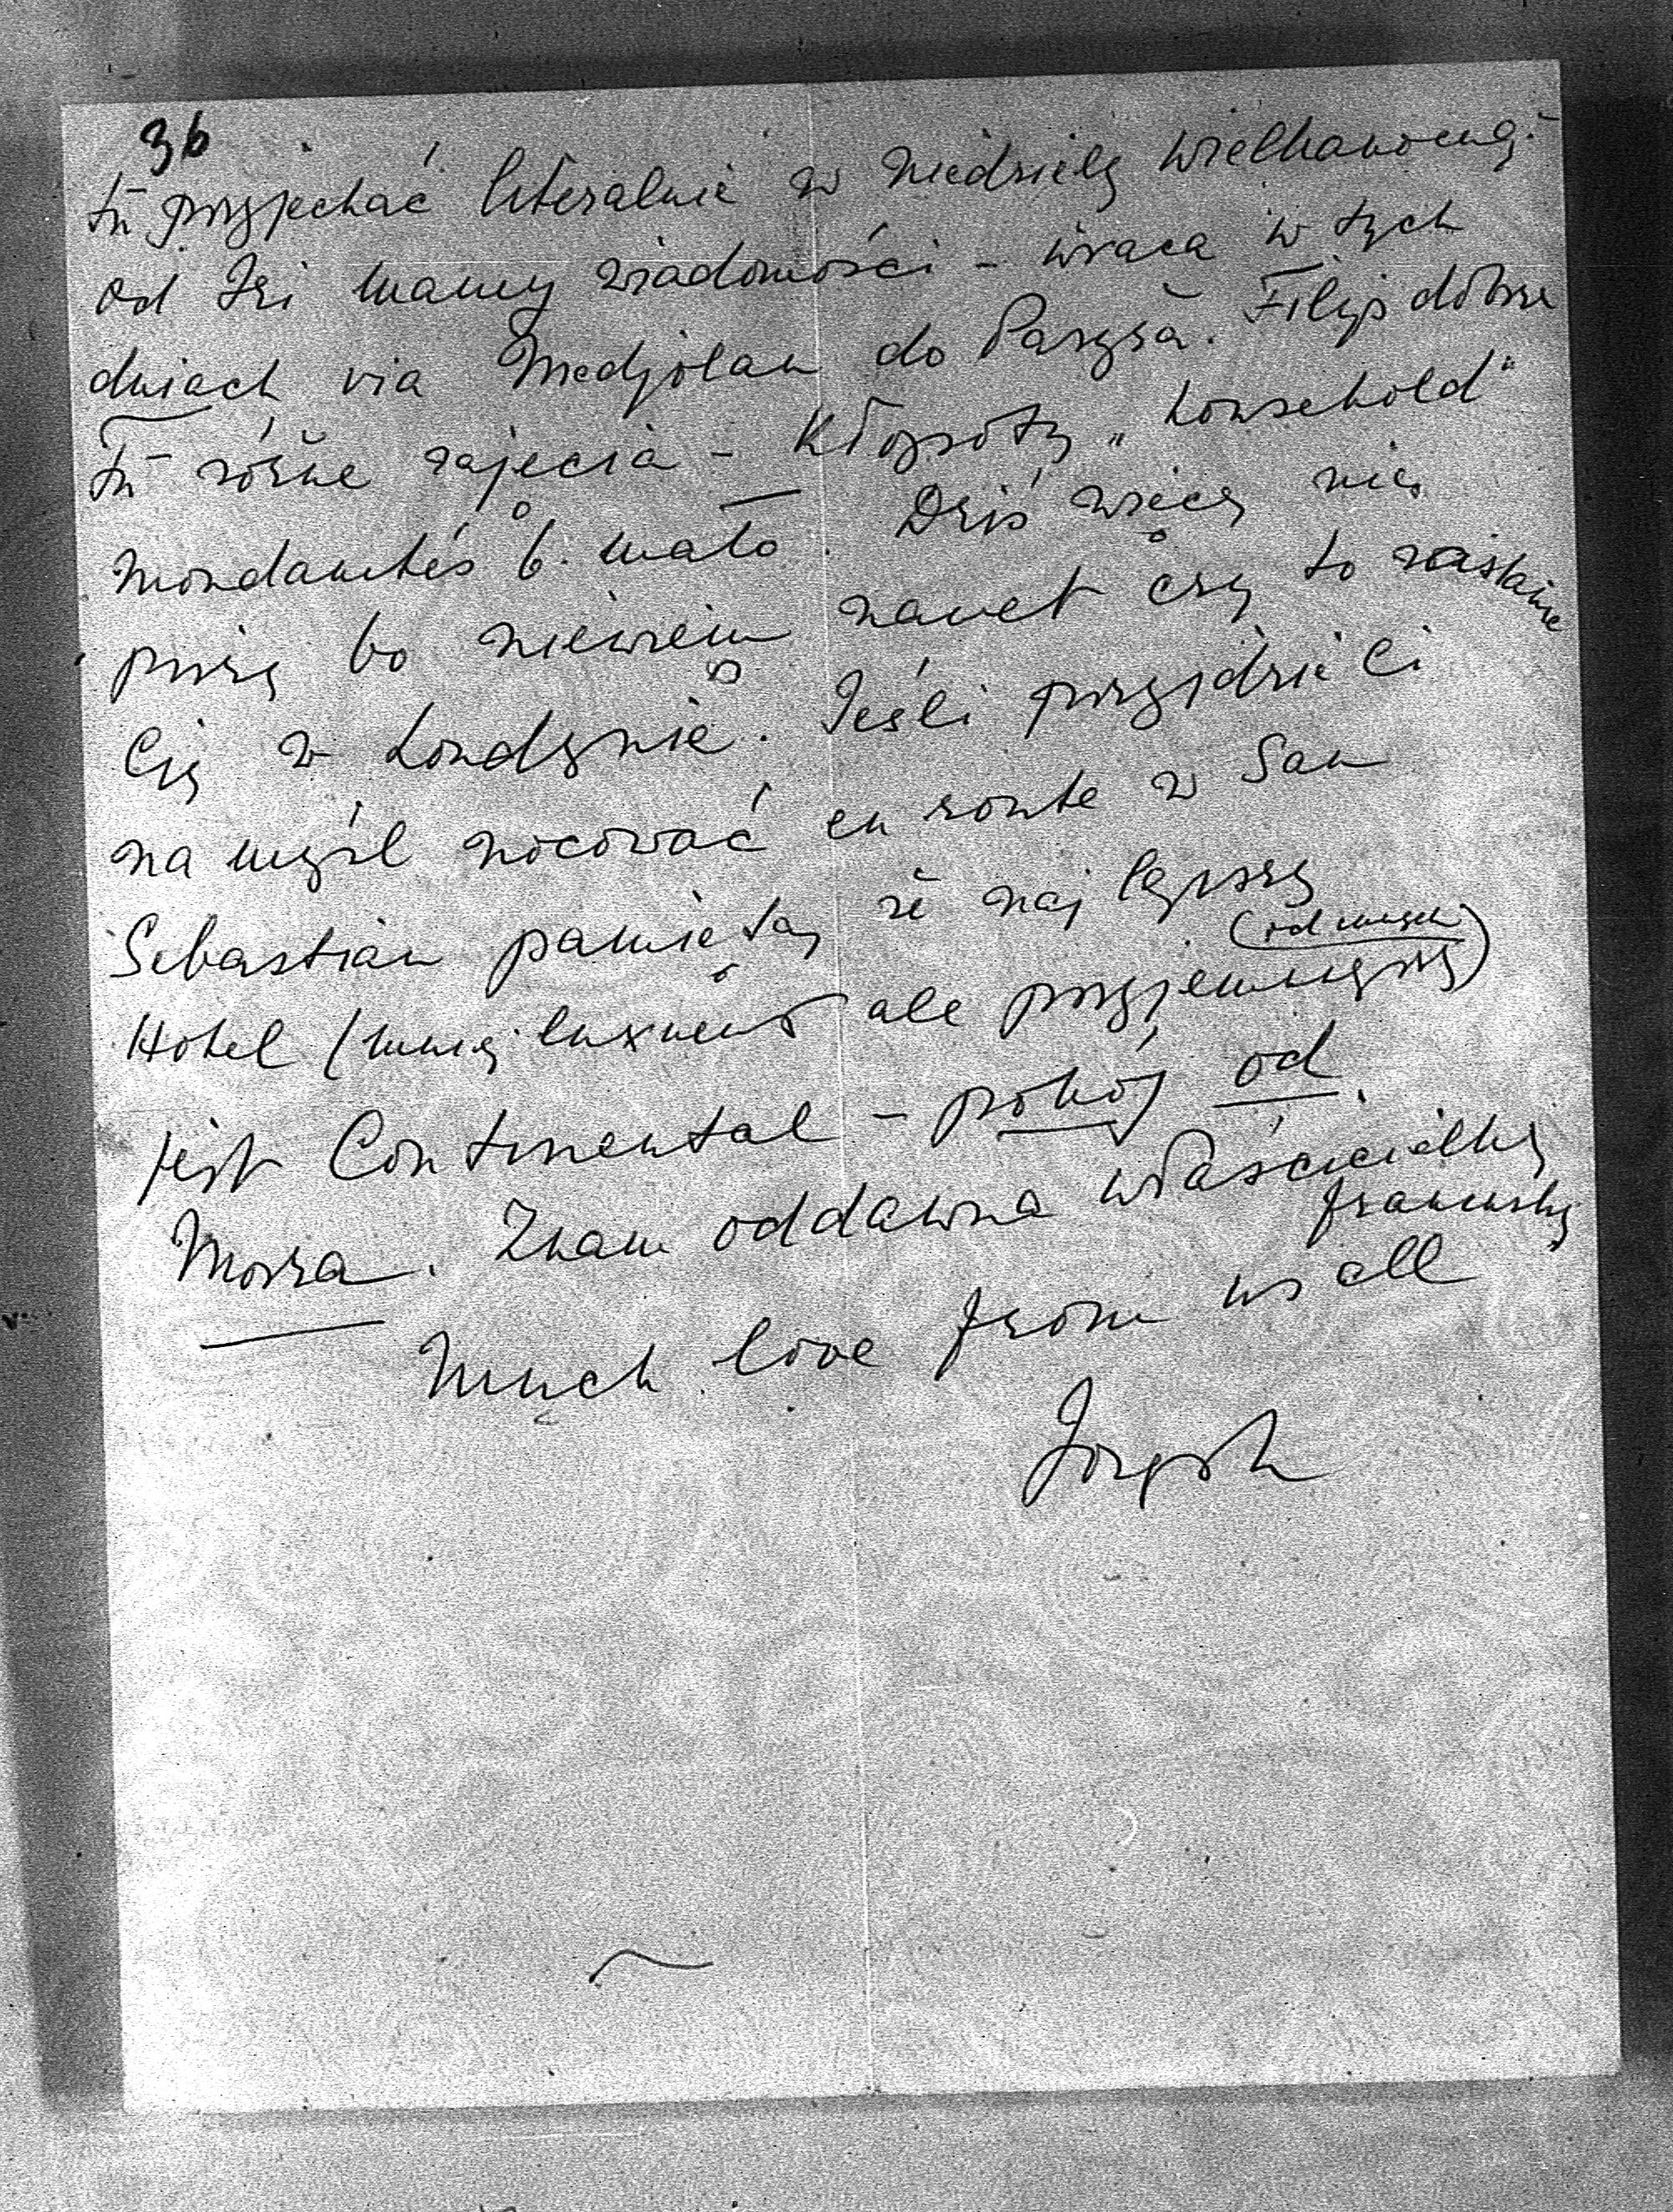 36
tu przyjechać literalnie w niedzielę wielkanocną.
od Izi mamy wiadomości – wraca w tych
dniach via Medjolan do Paryża. Filip dobrze
tu różne zajęcia – kłopoty „household"
mondanités b. mało. Dziś więcej nie
piszę bo niewiem nawet czy to zastanie
Cię w Londynie. Jeśli przyjdzie Ci
na myśl nocować en route w San
Sebastian pamiętaj że najlepszy
(od innych)
Hotel (mniej luxueux ale przyjemny)
jest Continental – pokój od
Morza. Znam oddawna właścicielkę
francuskę
Much love from us all
Joseph